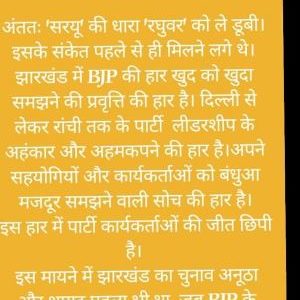 अंततः 'सरयू' की धारा 'रघुवर' को ले डूबी।
इसके संकेत पहले से ही मिलने लगे थे।
झारखंड में BJP की हार खुद को खुदा
समझने की प्रवृत्ति की हार है। दिल्ली से
लेकर रांची तक के पार्टी लीडरशीप के
अहंकार और अहमकपने की हार है।अपने
सहयोगियों और कार्यकर्ताओं को बंधुआ
मजदूर समझने वाली सोच की हार है।
इस हार में पार्टी कार्यकर्ताओं की जीत छिपी
है।
इस मायने में झारखंड का चुनाव अनूठा